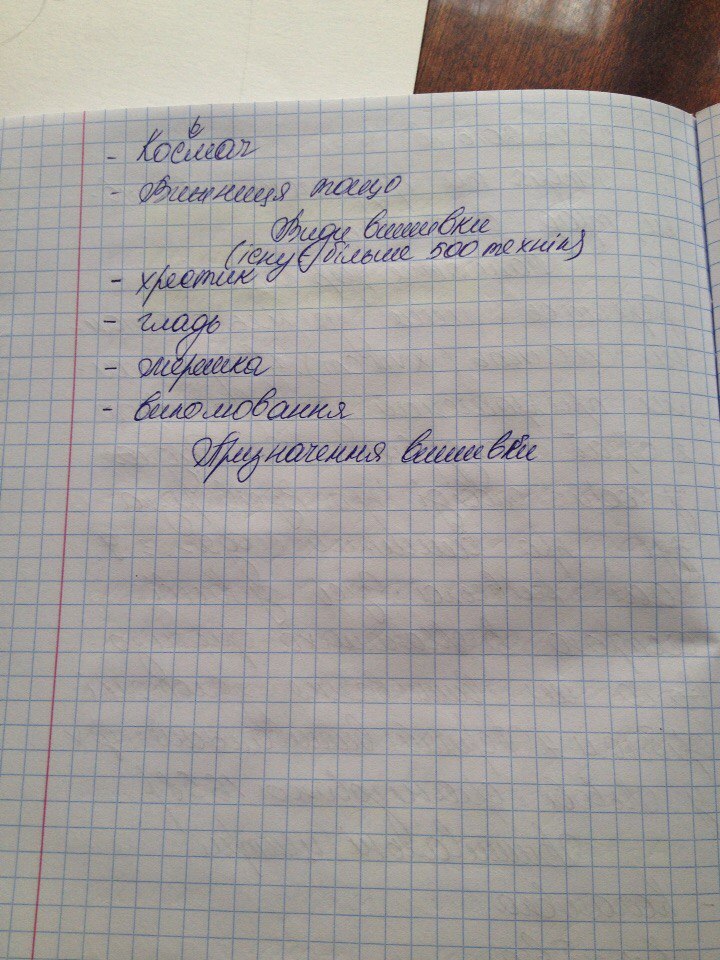 - Косьмач
- Вижниця тощо
Види вишивки
(існує більше 500 технік)
- хрестик
- гладь
- мережка
- виполювання
Призначення вишивки